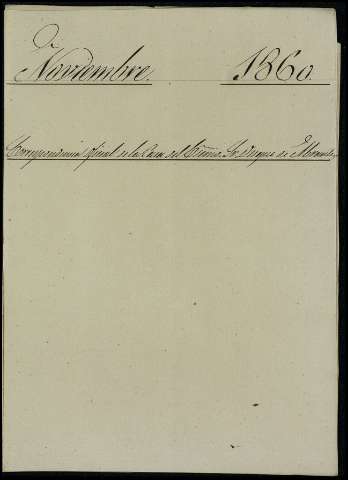 Noviembre. 1860.
Correspondencia oficial de la Casa del Excmo. Sr. Duque de